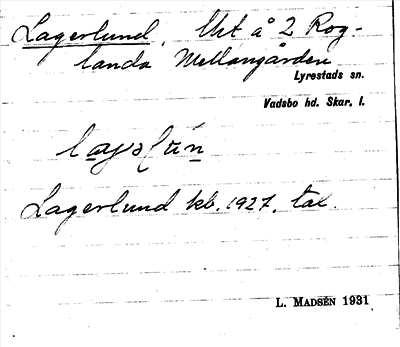 Lagerlund. Uht å 2 Rog-
landa Mellangården
Lyrestads sn.
Vadsbo hd. Skar. l.
Lagerlund kb. 1927, tax.
L. MADSÉN 1931